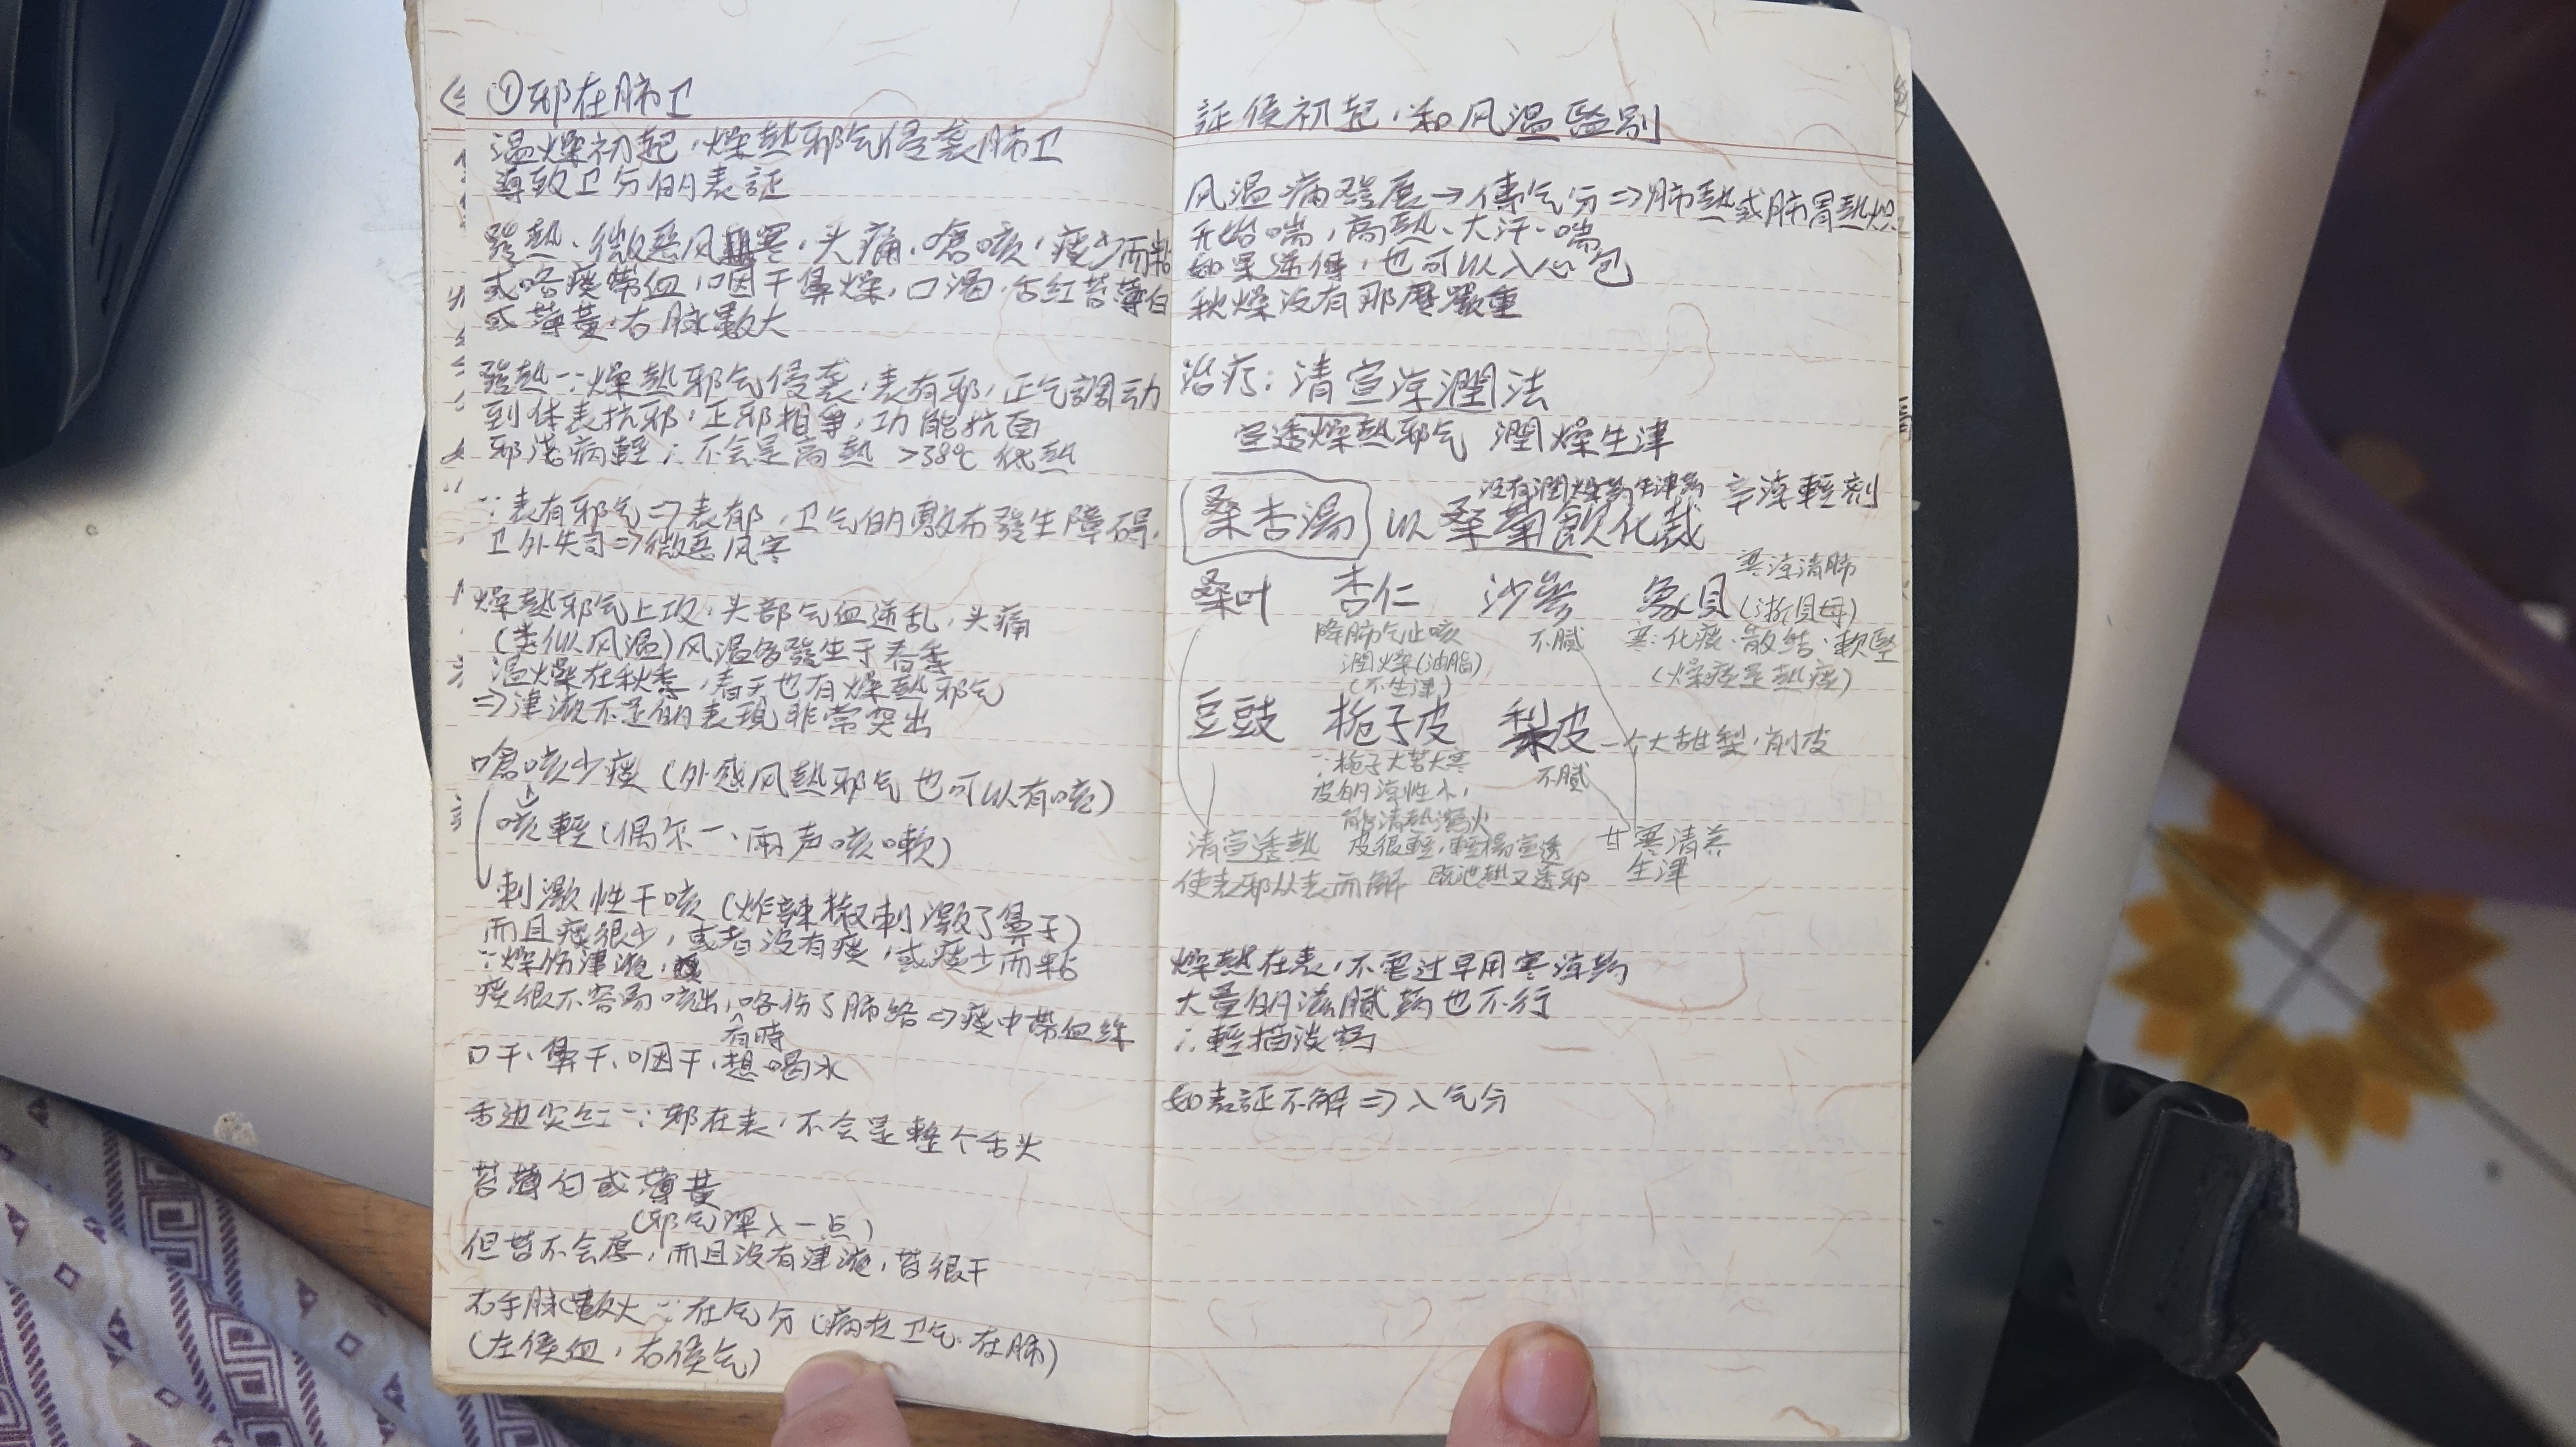 ①邪在肺卫
温燥初起，燥熱邪气侵袭肺卫
導致卫分的表証
發熱、微恶风寒，头痛，嗆咳，痰少而粘
或咯痰带血，咽干鼻燥，口渴，舌红苔薄白
或薄黄，右脉數大
發熱∵燥熱邪气侵袭，表有邪，正气調动
到体表抗邪，正邪相争，功能抗
邪浅病輕∴不会是高熱 >38℃ 低热
∵表有邪气⇒表郁，卫气的敷布發生障碍，
卫外失司⇒微恶风寒
燥熱邪气上攻，头部气血逆乱，头痛
(类似风温)风温多發生于春季
温燥在秋季，春天也有燥熱邪气
⇒津液不足的表現非常突出
嗆咳少痰（外感风熱邪气也可以有咳）
咳輕（偶尔一、兩声咳嗽）
刺激性干咳（炸辣椒刺激了鼻子）
而且痰很少，或者没有痰，或痰少而粘
∵燥伤津液，
痰很不容易咳出，咯伤了肺络⇒痰中带血丝
有時
口干、鼻干、咽干，想喝水
舌边尖红∵邪在表，不会是整个舌头
苔薄白或薄黄
（邪气深入一点）
但苔不会厚，而且没有津液，苔很干
右手脉數大∵在气分（病在卫气，在肺）
（左候血，右候气）
証候初起，和风温鉴别
风温病發展→傳气分⇒肺熱或肺胃熱炽
开始喘，高熱、大汗、喘
如果逆傳，也可以入心包
秋燥没有那麼嚴重
治疗：清宣凉潤法
宣透燥熱邪气 潤燥生津
没有潤燥药生津药 辛凉輕剂
桑杏湯 以桑菊飲化裁
寒凉清肺
桑叶 杏仁 沙参 象贝（浙贝母）
降肺气止咳 不腻 寒：化痰、散结、軟堅
潤燥（油脂） （燥痰是熱痰）
（不生津）
豆豉 栀子皮 梨皮 一个大甜梨，削皮
∵栀子大苦大寒 不腻
皮的凉性小，
能清熱瀉火
清宣透熱 皮很輕，輕揚宣透 甘寒清养
使表邪从表而解 既泄熱又透邪 生津
燥熱在表，不需过早用寒凉药
大量的滋腻药也不行
∴輕描淡寫
如表証不解⇒入气分